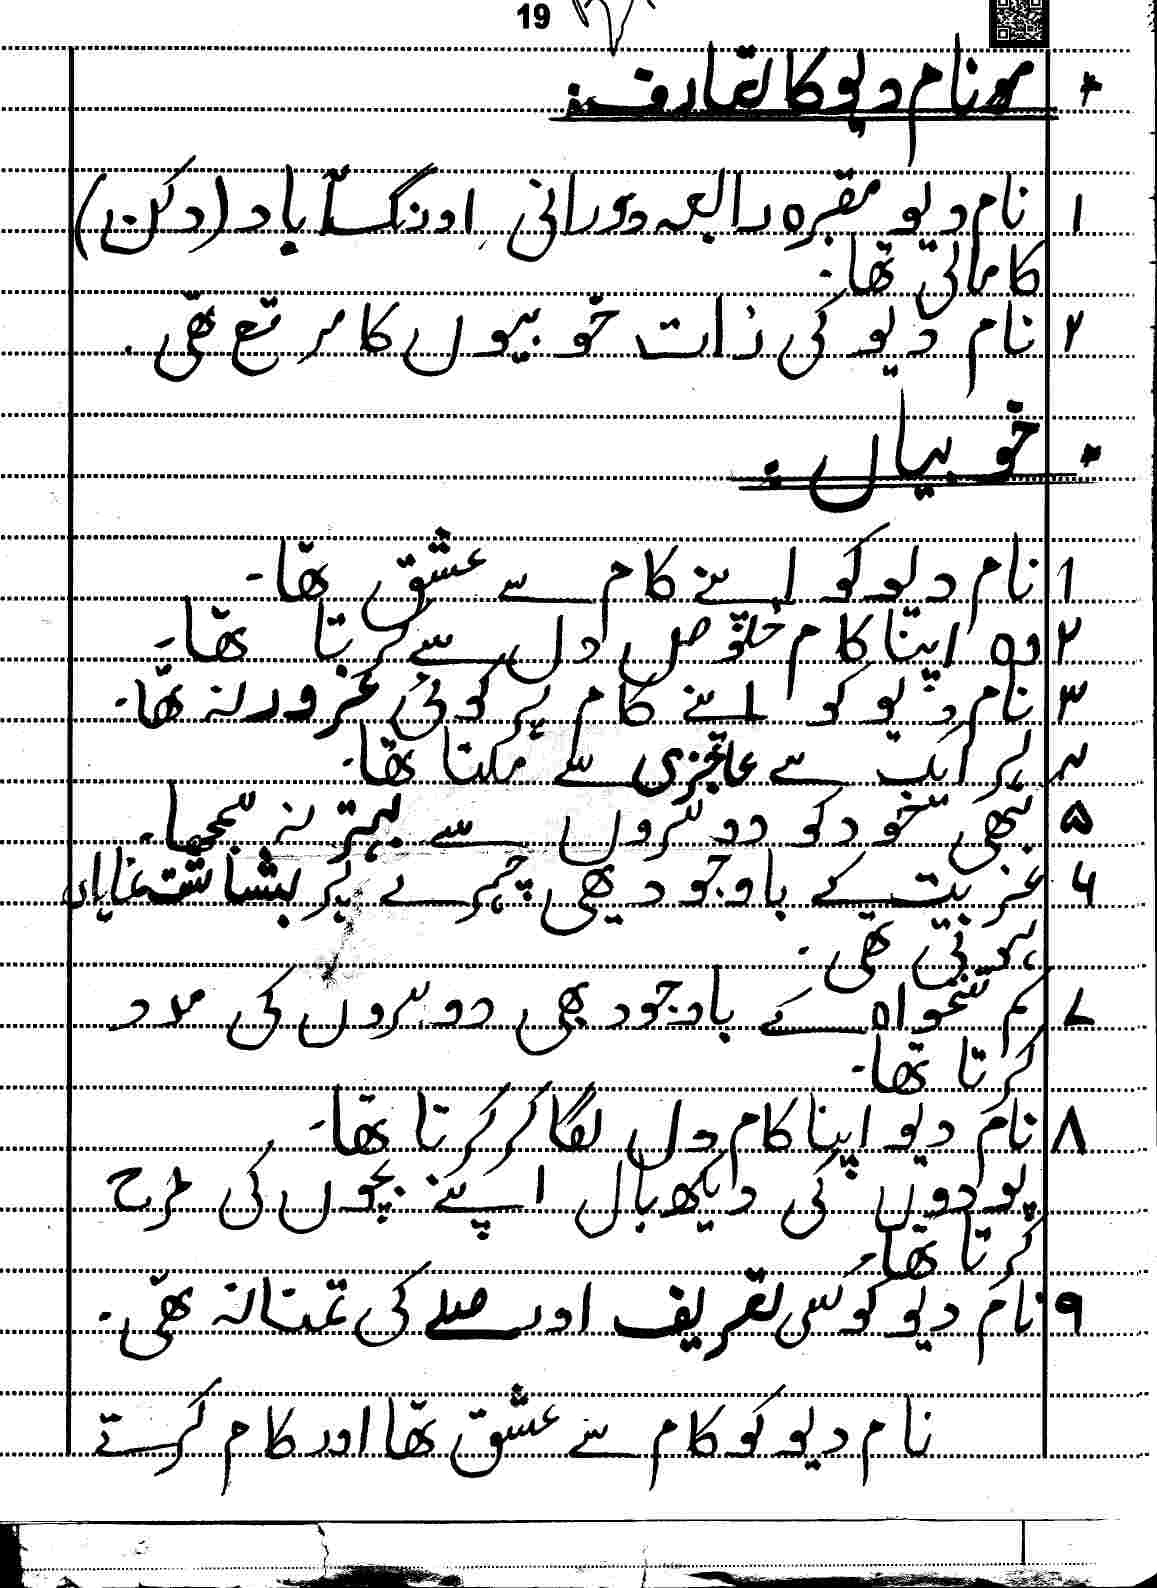 19
نام دیو کا تعارف:
۱ نام دیو مقبرہ رابعہ دورانی اورنگ آباد (دکن)
کا مالی تھا۔
۲ نام دیو کی ذات خوبیوں کا مرقع تھی۔
خوبیاں:
۱ نام دیو کو اپنے کام سے عشق تھا۔
۲ وہ اپنا کام خلوص دل سے کرتا تھا۔
۳ نام دیو کو اپنے کام پر کوئی غرور نہ تھا۔
۴ ہر ایک سے عاجزی سے ملتا تھا۔
۵ کبھی خود کو دوسروں سے بہتر نہ سمجھا۔
۶ غربت کے باوجود بھی چہرے پر بشاشت نمایاں
ہوتی تھی۔
۷ کم تنخواہ کے باوجود بھی دوسروں کی مدد
کرتا تھا۔
۸ نام دیو اپنا کام دل لگا کر کرتا تھا۔
پودوں کی دیکھ بال اپنے بچوں کی طرح
کرتا تھا۔
۹ نام دیو کو کسی تعریف اور صلے کی تمنا نہ تھی۔
نام دیو کو کام سے عشق تھا اور کام کرتے